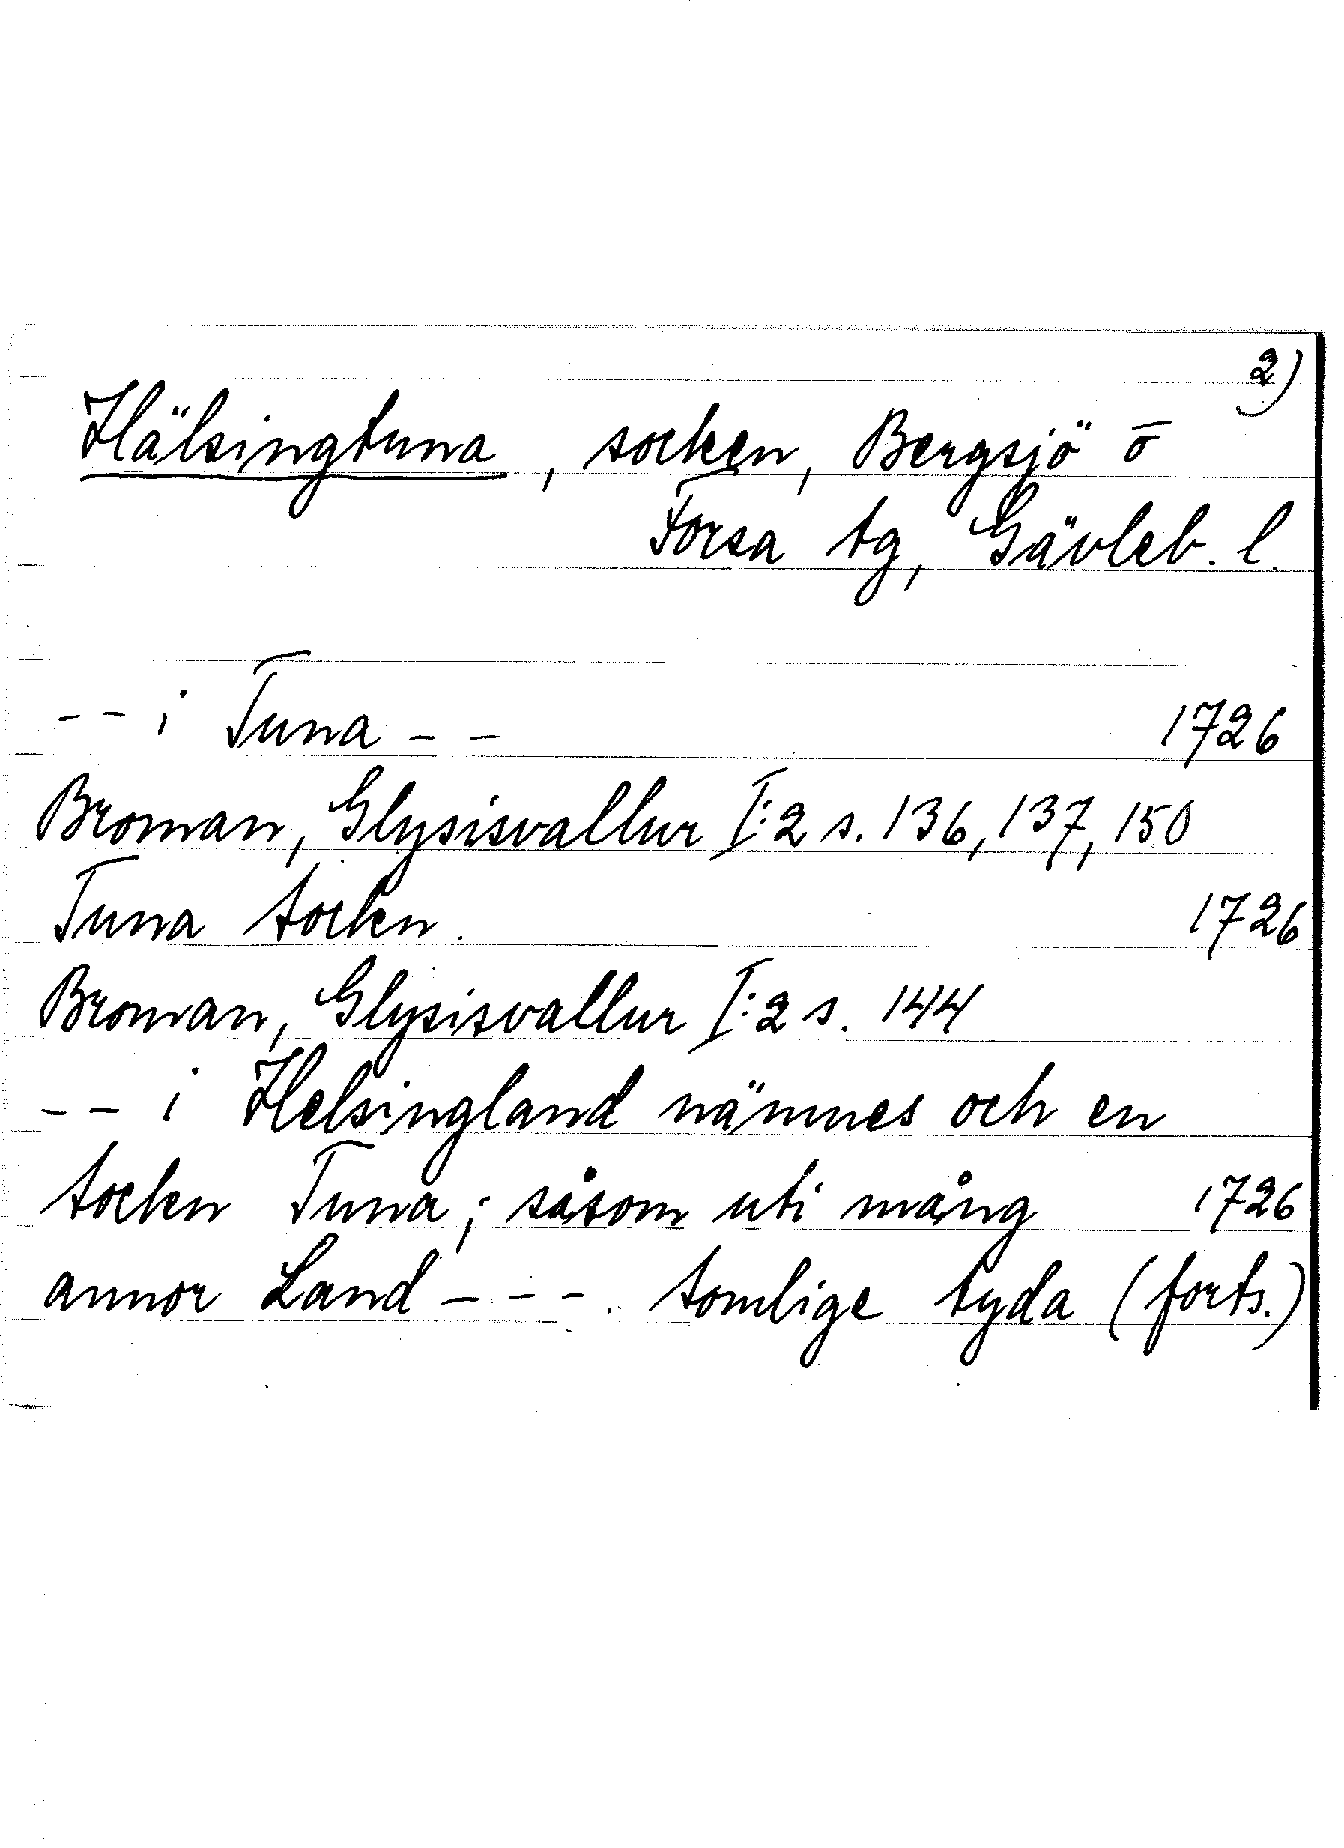 2)
Hälsingtuna, socken, Bergsjö o
Forsa tg, Gävleb. l.
-- i Tuna --                    1726
Broman, Glysisvallur I:2 s. 136, 137, 150
Tuna Socken.                    1726
Broman, Glysisvallur I:2 s. 144
-- i Helsingland nämnes och en
Socken Tuna; såsom uti mång      1726
annor Land ---. Somlige tyda (forts.)